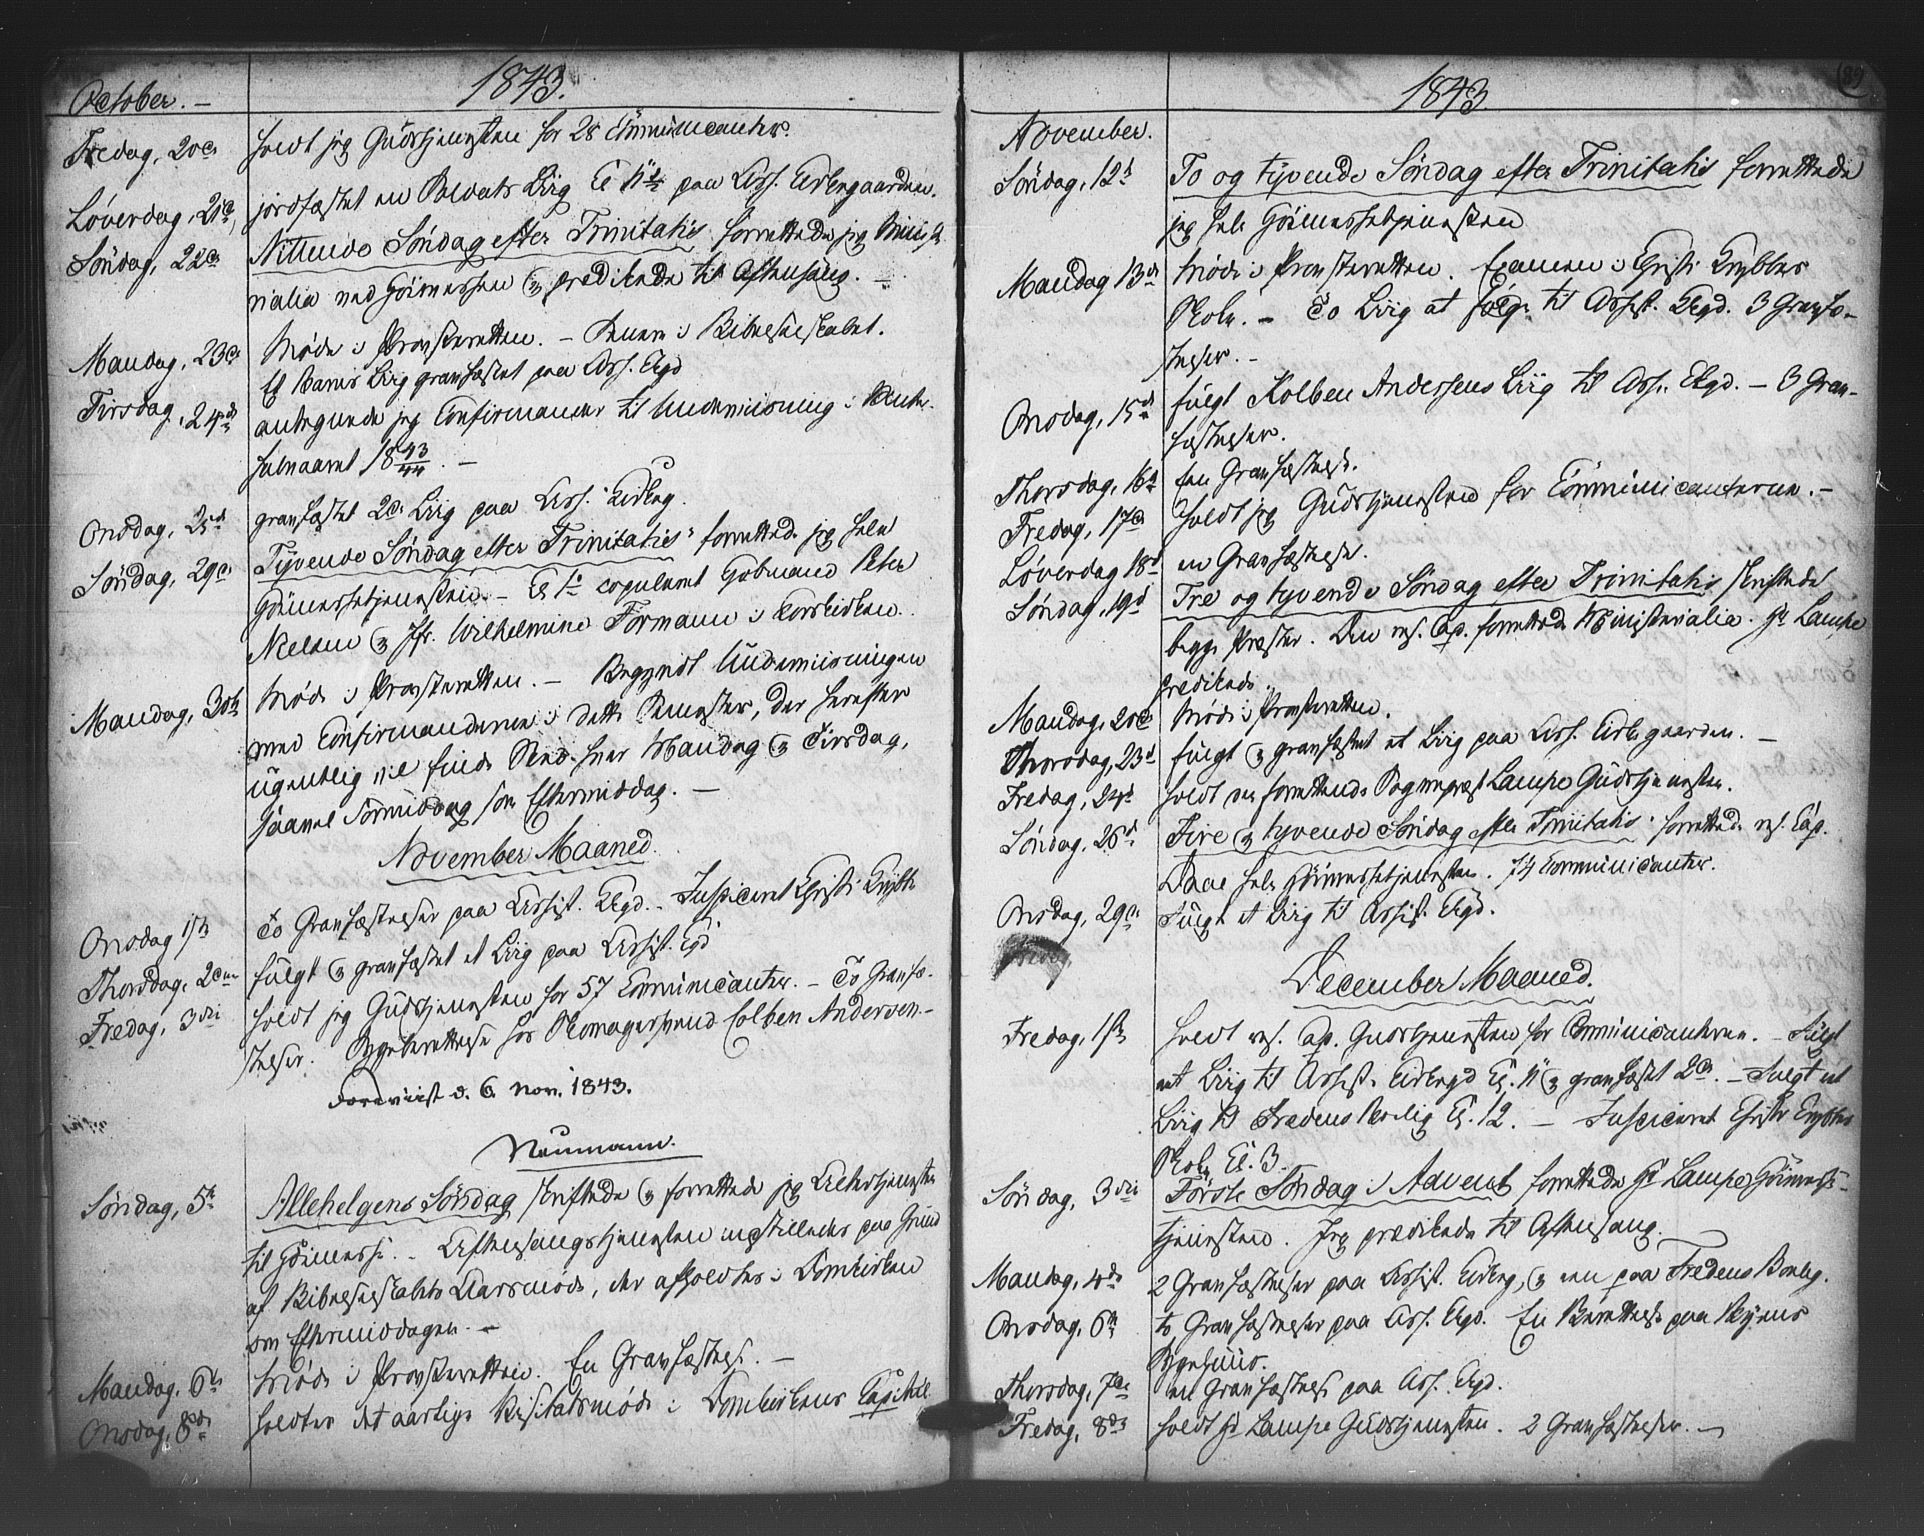 October. – 1843.
Fredag, 20de holdt jeg Gudstjenesten for 28 Communicanter.
Løverdag, 21de jordfæstet en Soldats Liig Cl. 11½ paa Ass. Kirkegaarden.
Søndag, 22de Nittende Søndag efter Trinitatis forrettede jeg Minist-
rialia ved Höimessen og prædikede til Aftensang. –
Mandag, 23de Møde i Provsteretten. – Senere i Bibelselskabet.
Et Barns Liig gravfæstet paa Ass. Kgd
Tirsdag, 24de antegnede jeg Confirmander til Underviisning i Vinter-
halvaaret 1843/44. –
Onsdag, 25d gravfæstet 2de Liig paa Ass. Kirkeg.
Søndag, 29de Tyvende Søndag efter Trinitatis forrettede jeg hele
Höimessetjenesten. – Cl. copuleret Grosmand Peter
Nielsen og Jfr. Wilhelmine Formann i Torskirken.
Mandag, 30te Møde i Provsteretten. – Begyndt Underviisningen
med Confirmanderne i dette Semester, der herefter
ugentlig vil finde Sted hver Mandag og Tirsdag,
saavel Formiddag som Eftermiddag. –
November Maaned.
Onsdag 1ste To Gravfæstelser paa Assist. Kkgd. – Inspiceret Gjsti
Thorsdag, 2den fulgt og gravfæstet et Liig paa Assist. Kgd
Fredag, 3die holdt jeg Gudstjenesten for 57 Communicanter. – To Gravfæ-
stelser. Sygeberettelse hos Skomagersvend Colben Andersen. –
Foreviist d. 6. Nov. 1843.
Neumann.
Søndag, 5te Allehelgens Søndag skriftede og forrettede jeg Alterstjenesten
til Höimesse. – Aftensangstjenesten indstilledes paa Grund
af Bibelselskabets Aarsmøde, der afholdtes i Domkirken
om Eftermiddagen. –
Mandag, 6te Møde i Provsteretten. En Gravfæstelse. –
Onsdag, 8de holdtes det aarlige Visitatsmøde i Domkirkens Capitel
1843
November.
Søndag, 12te To og tyvende Søndag efter Trinitatis forrettede
jeg hele Höimessetjenesten
Mandag 13de Møde i Provsteretten. Examen i
Skole. – To Liig at følge til Assist. Kkgd. 3 Gravfæ-
stelser. –
Onsdag, 15de fulgt Kolben Andersens Liig til Ass. Kkgd. – 3 Grav-
fæstelser.
Thorsdag, 16de En Gravfæstelse.
Fredag, 17de holdt jeg Gudstjenesten for Communicanterne. –
Løverdag 18d en Gravfæstelse.
Søndag, 19d Tre og tyvende Søndag efter Trinitatis skriftede
begge Præster. Den res. Cap. forrettede Ministerialia. Hr Lampe
prædikede.
Mandag, 20de Møde i Provsteretten.
Thorsdag, 23d fulgt og gravfæstet et Liig paa Ass. Kirkegaarden. –
Fredag, 24d holdt den forrettende Sognepræst Lampe Gudstjenesten.
Søndag, 26d Fire og tyvende Søndag efter Trinitatis forrettede res. Cap.
hele Höimessetjenesten. 74 Communicanter.
Onsdag, 29de Fulgt et Liig til Assist. Kgd.
December Maaned.
Fredag, 1ste holdt res. Cap. Gudstjenesten for Communicanterne. – Fulgt
et Liig til Assist. Kirkegd Cl. 11 og gravfæstet 2de. – Fulgt et
Liig til Fredens Bolig Cl. 12. – Inspiceret
Skole Cl. 3.
Søndag, 3die Første Søndag i Advent forrettede Hr Lampe Höimesse-
tjenesten. Jeg prædikede til Aftensang.
Mandag, 4de 2 Gravfæstelser paa Assist. Kirkeg., og een paa Fredens Bolig.
Onsdag, 6te to Gravfæstelser paa Ass. Kgd. En Berettelse paa Byens
Sygehuus.
Thorsdag, 7de en Gravfæstelse paa Ass. Kkgd.
Fredag, 8de holdt Hr Lampe Gudstjenesten. 2 Gravfæstelser. –